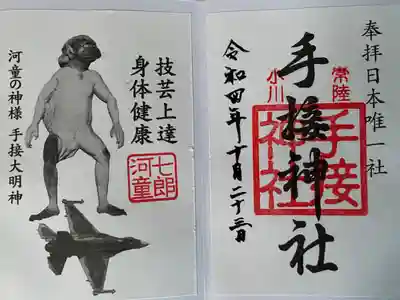 奉拝日本唯一社
常陸
手接神社
小川
手接神社
令和四年十月二十三日
技芸上達
身体健康
七郎河童
河童の神様 手接大明神